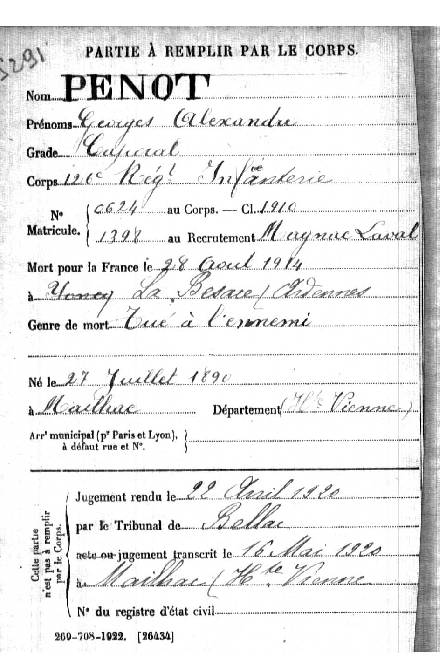 5291
PARTIE À REMPLIR PAR LE CORPS.
Nom PENOT
Prénoms Georges Alexandre
Grade Caporal
Corps 120e Régt Infanterie
N° Matricule. 6624 au Corps. — Cl. 1910
1398 au Recrutement Magnac Laval
Mort pour la France le 28 Aout 1914
à Yoncq La Besace (Ardennes
Genre de mort Tué à l'ennemi
Né le 27 Juillet 1890
à Mailhac Département (Hte Vienne)
Arrt municipal (pr Paris et Lyon),
à défaut rue et N°.
Cette partie
n'est pas à remplir
par le Corps.
Jugement rendu le 22 Avril 1920
par le Tribunal de Bellac
acte ou jugement transcrit le 16 Mai 1920
à Mailhac (Hte Vienne
N° du registre d'état civil
269-708-1922. [26434]